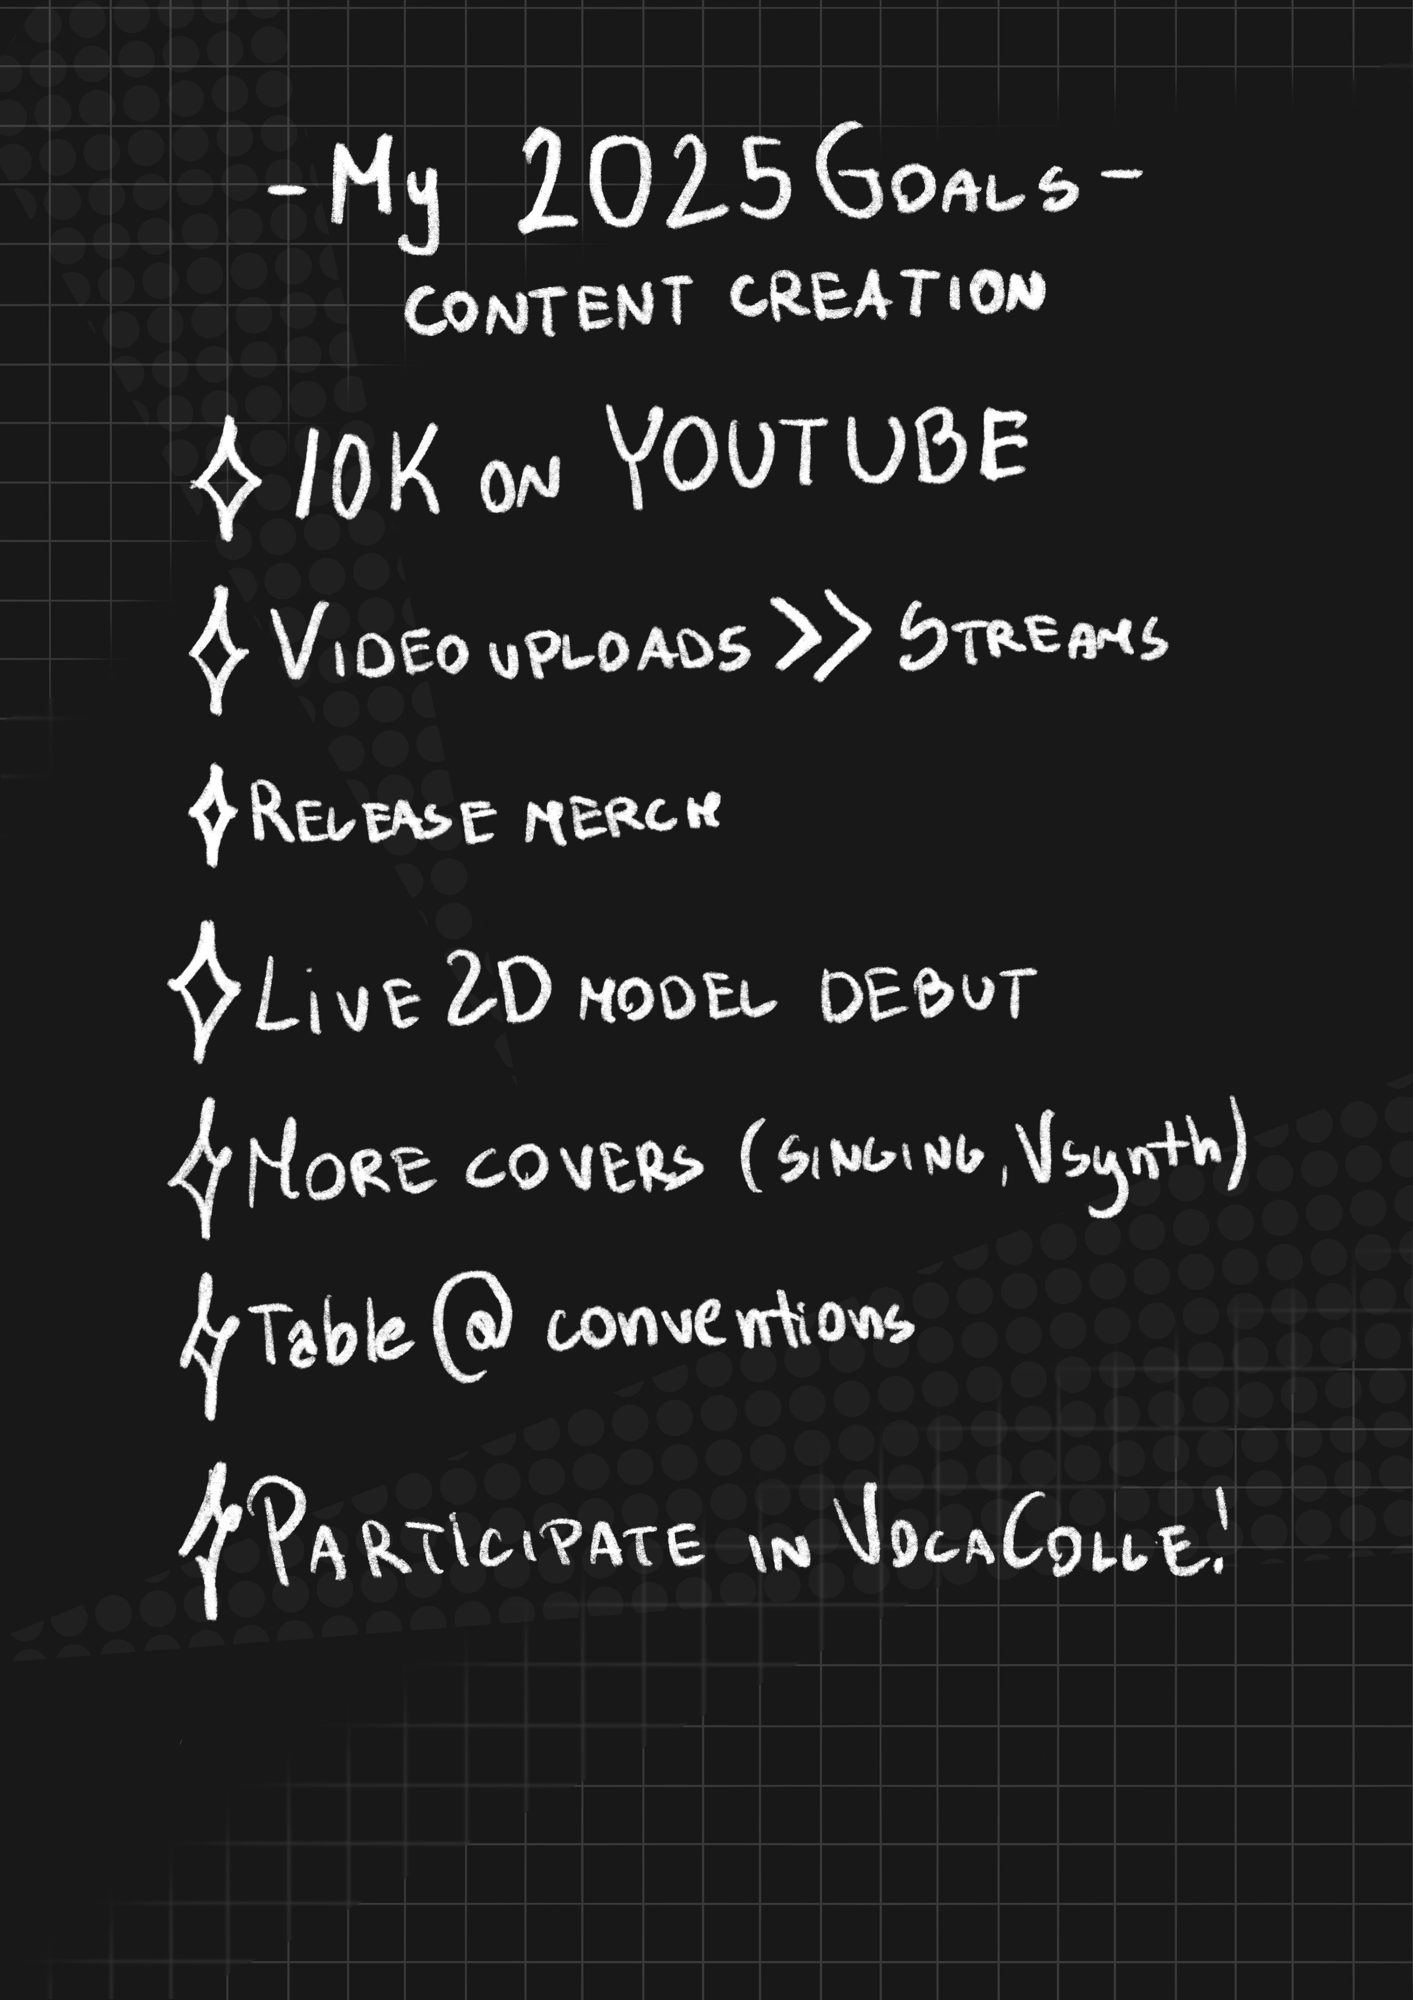 - My 2025 Goals -
CONTENT CREATION
10K ON YOUTUBE
VIDEO UPLOADS >> STREAMS
RELEASE MERCH
LiVE 2D MODEL DEBUT
MORE COVERS (SINGING, Vsynth)
Table @ conventions
PARTICIPATE IN VOCACOLLE!